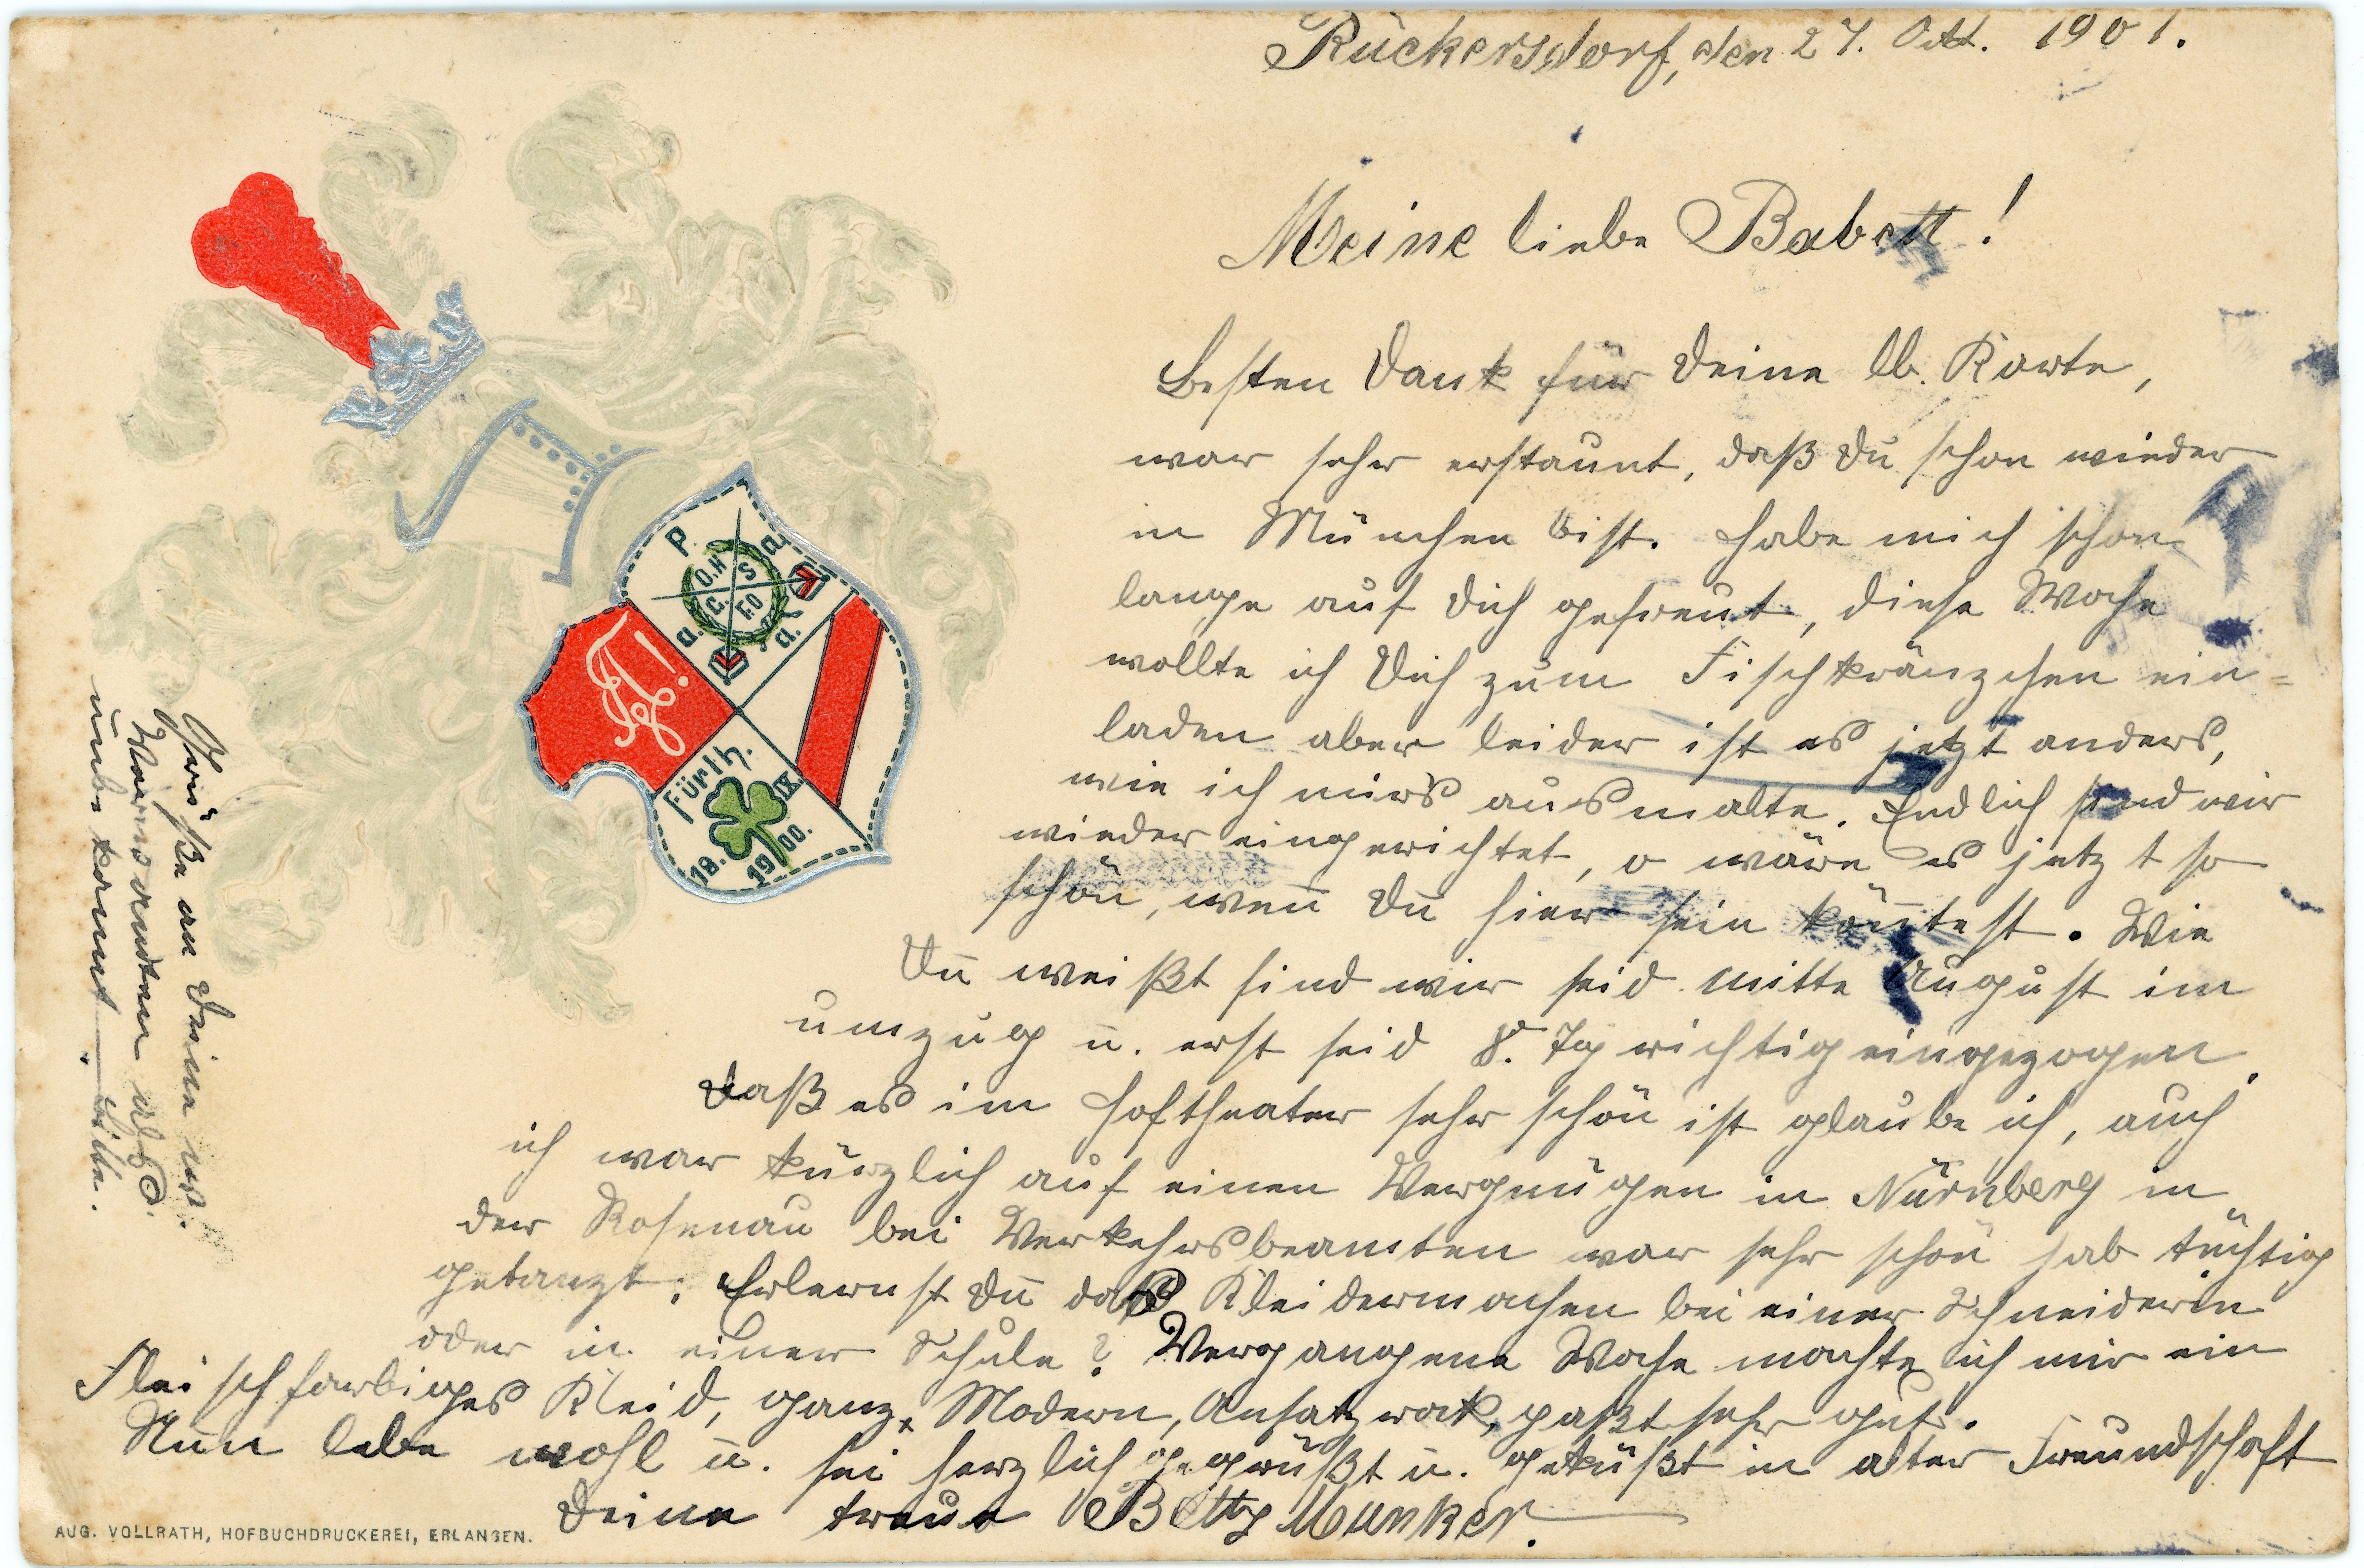 Rückersdorf, den 27. Okt. 1901.
Meine liebe Babett!
Besten Dank für Deine lb. Karte,
war sehr erstaunt, daß Du schon wieder
in München bist. Habe mich schon
lange auf Dich gefreut, diese Woche
wollte ich Dich zum Fischkränzchen ein-
laden aber leider ist es jetzt anders,
wie ich mirs ausmalte. Endlich sind wir
wieder eingerichtet, o wäre es jetzt so
schön, wen̄ Du hier sein kön̄test. Wie
Du weißt sind wir seid mitte August im
umzug u. erst seid 8. Tg richtig eingezogen.
Daß es im Hoftheater sehr schön ist glaube ich, auch
ich war kürzlich auf einen Vergnügen in Nürnberg in
der Rosenau bei Verkehrsbeamten war sehr schön hab tüchtig
getanzt. Erlernst Du das Kleidermachen bei einer Schneiderin
oder in einer Schule? Vergangene Woche machte ich mir ein
Fleischfarbiges Kleid, ganz Modern, Ansatzrock, paßt sehr gut.
Nun lebe wohl u. sei herzlich gegrüßt u. geküßt in alter Freundschaft
Deine treue Betty Munker.
Grüße an Deine w.
Verwandten
unbekannt
P. a. a. a.
O.H S C. F.O
Fürth.
18. IX. 1900.
AUG. VOLLRATH, HOFBUCHDRUCKEREI, ERLANGEN.